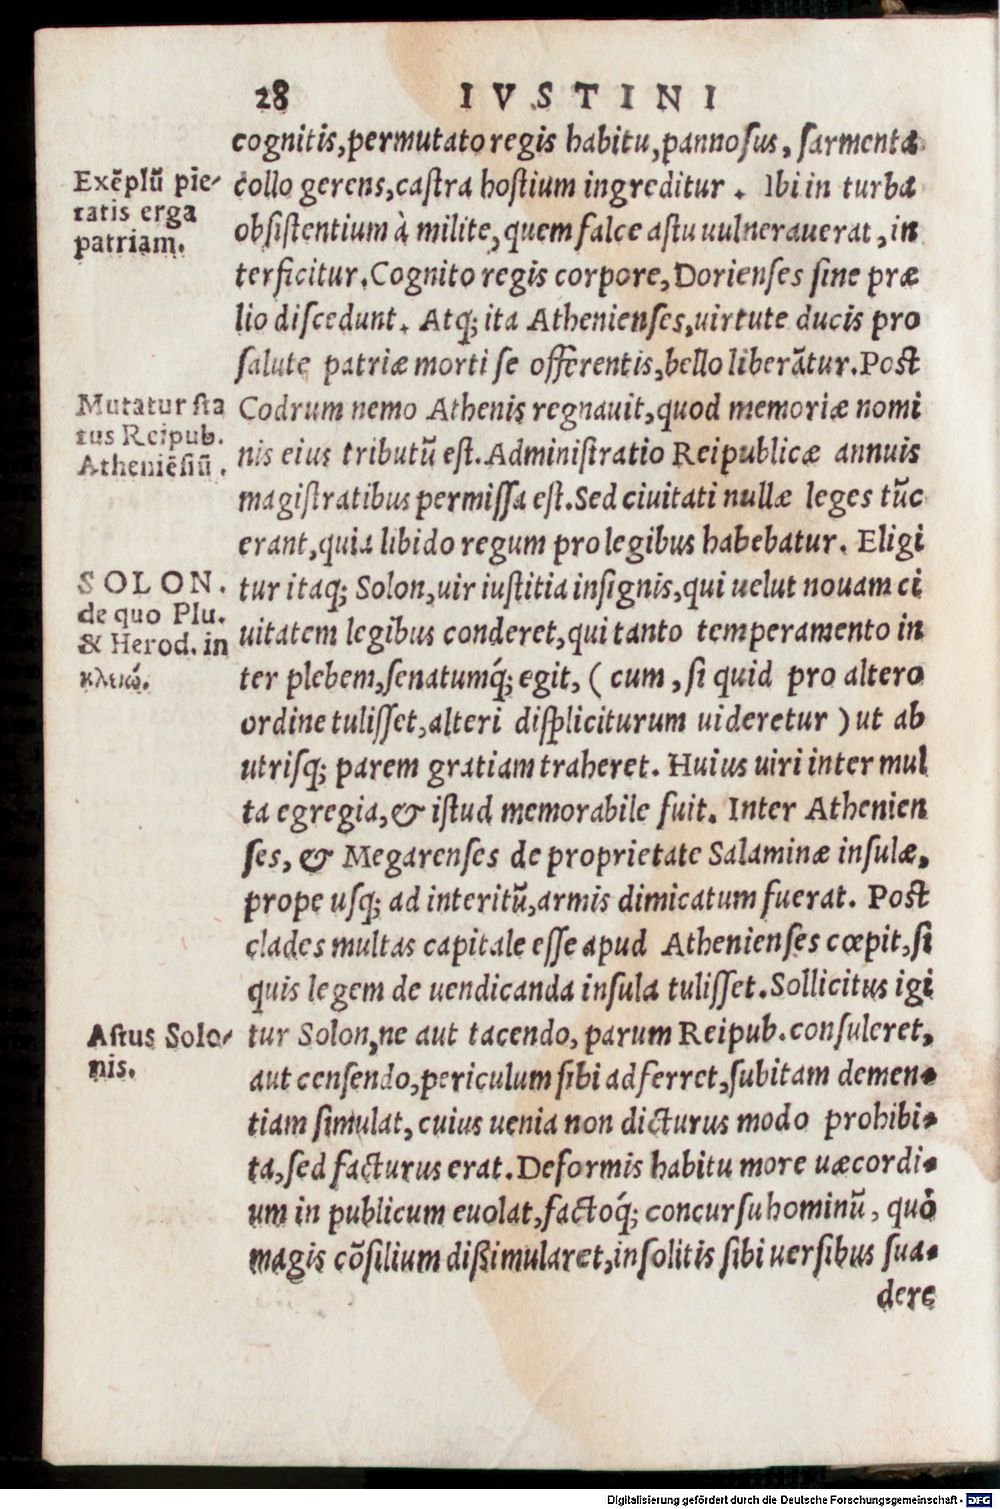 28 IVSTINI
cognitis, permutato regis habitu, pannosus, sarmenta
Exēplū pie-
tatis erga
patriam.
collo gerens, castra hostium ingreditur. Ibi in turba
obsistentium à milite, quem falce astu uulnerauerat, in
terficitur. Cognito regis corpore, Dorienses sine præ
lio discedunt. Atq; ita Athenienses, uirtute ducis pro
salute patriæ morti se offerentis, bello liberātur. Post
Mutatur sta
tus Reipub.
Atheniēsiū.
Codrum nemo Athenis regnauit, quod memoriæ nomi
nis eius tributū est. Administratio Reipublicæ annuis
magistratibus permissa est. Sed ciuitati nullæ leges tūc
erant, quia libido regum pro legibus habebatur. Eligi
SOLON.
de quo Plu.
& Herod. in
κλειώ.
tur itaq; Solon, uir iustitia insignis, qui uelut nouam ci
uitatem legibus conderet, qui tanto temperamento in
ter plebem, senatumq́; egit, (cum, si quid pro altero
ordine tulisset, alteri displiciturum uideretur) ut ab
utrisq; parem gratiam traheret. Huius uiri inter mul
ta egregia, & istud memorabile fuit. Inter Athenien
ses, & Megarenses de proprietate Salaminæ insulæ,
prope usq; ad interitū, armis dimicatum fuerat. Post
clades multas capitale esse apud Athenienses cœpit, si
quis legem de uendicanda insula tulisset. Sollicitus igi
Astus Solo-
nis.
tur Solon, ne aut tacendo, parum Reipub. consuleret,
aut censendo, periculum sibi adferret, subitam demen-
tiam simulat, cuius uenia non dicturus modo prohibi-
ta, sed facturus erat. Deformis habitu more uæcordi-
um in publicum euolat, factoq́; concursu hominū, quò
magis cōsilium dißimularet, insolitis sibi uersibus sua-
dere
Digitalisierung gefördert durch die Deutsche Forschungsgemeinschaft - DFG